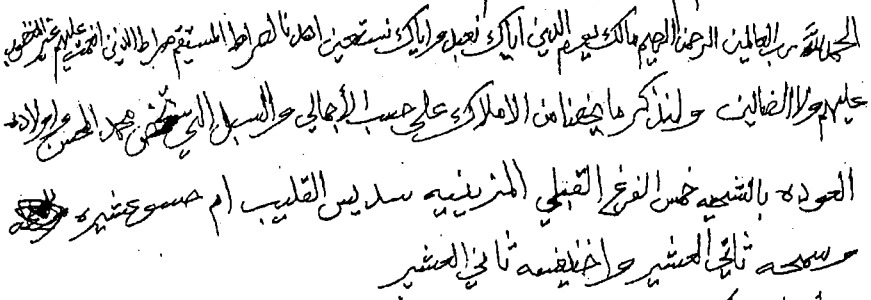 الحمد لله رب العالمين الرحمن الرحيم مالك يوم الدين اياك نعبد واياك نستعين اهدنا الصراط المستقيم صراط الذين انعمت عليهم غير المغضوب
عليهم ولا الضالين ولنذكر ما يخصنا من الاملاك على حسب الأجمالي والسبل التي تخص محمد المحسن واولاده
العوده بالشيحيه خمس الفرغ القبلي المزينيه سديس القليب ام عشيره
وسمحه ثاني العشير واخنيفسه ثاني العشير